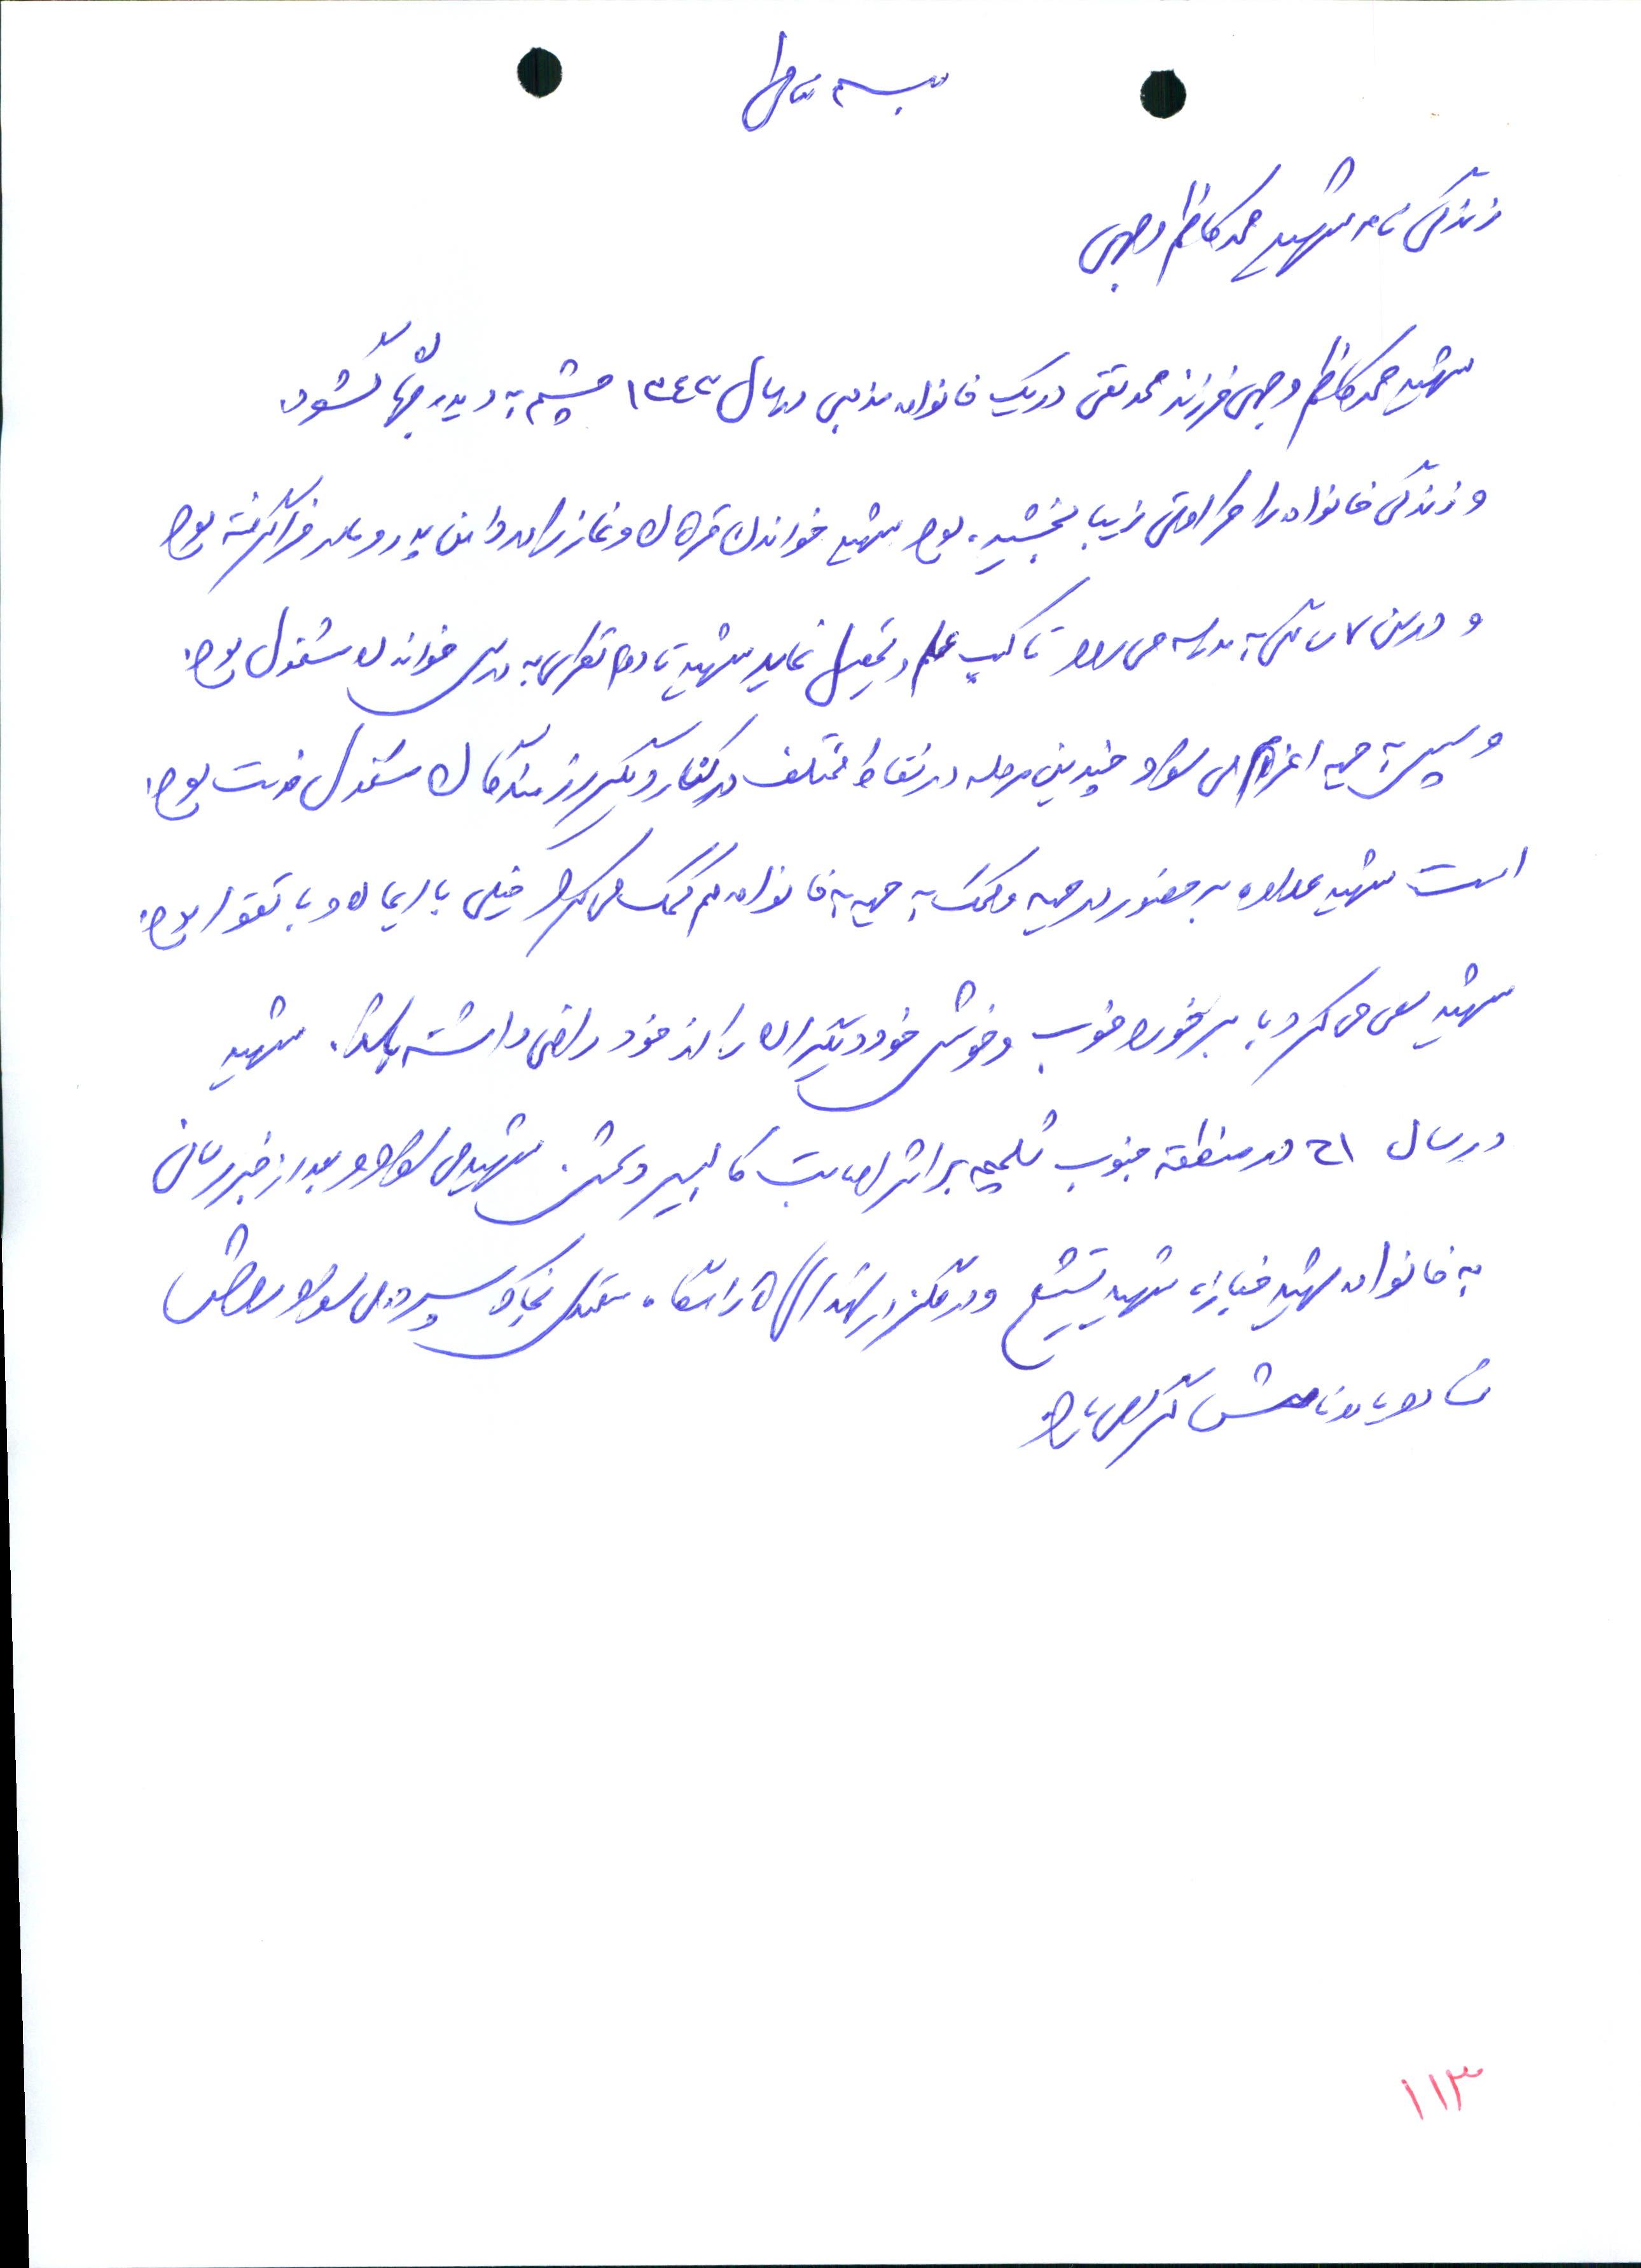 بسمه تعالی
زندگی نامه شهید محمد کاظم وجهی
شهید محمد کاظم وجهی فرزند محمد تقی در یک خانواده مذهبی در سال ۱۳۴۳ چشم به دیده جهان گشود.
و زندگی خانواده را زیبا بخشید. بود شهید خواندن قرآن و نماز را در دامن پدر و مادر فرا گرفته بود
و در سن ۷ سالگی به مدرسه می رود تا کسب علم و تحصیل نماید شهید تا دوم به درس خواندن مشغول بود.
و سپس به جبهه اعزام می شود و چندین مرحله در نقاط مختلف در کنار دیگر رزمندگان مشغول خدمت بود.
است شهید علاوه بر حضور در جبهه و کمک به جبهه به خانواده هم کمک می کرد خیلی با ایمان و با تقوا بود.
شهید سعی می کرد با برخورد خوب و خوش خود دیگران را از خود راضی داشته باشد. شهید
در سال ۶۱ در منطقه جنوب شلمچه بر اثر اصابت کالیبر دشمن شهید می شود و بعد از خبر رسانی
به خانواده شهید جنازه شهید تشییع و در گلزار شهدا به خاک سپرده می شود روحش
شاد و یادش گرامی باد.
۱۱۳